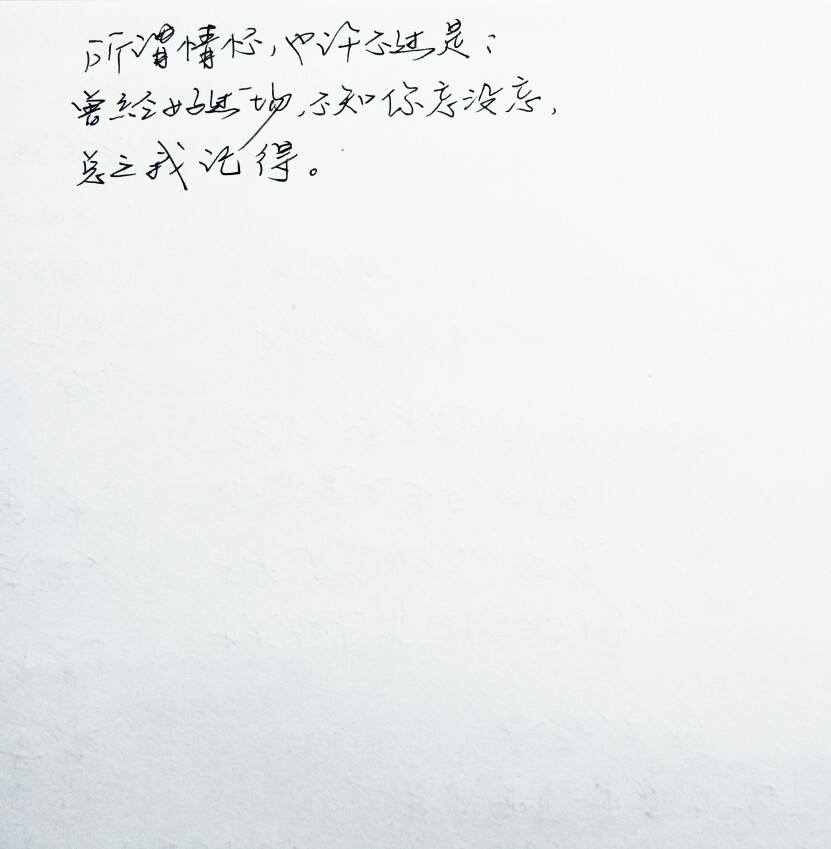 所谓情怀，也许不过是：
曾经好过一场，不知你忘没忘，
总之我记得。